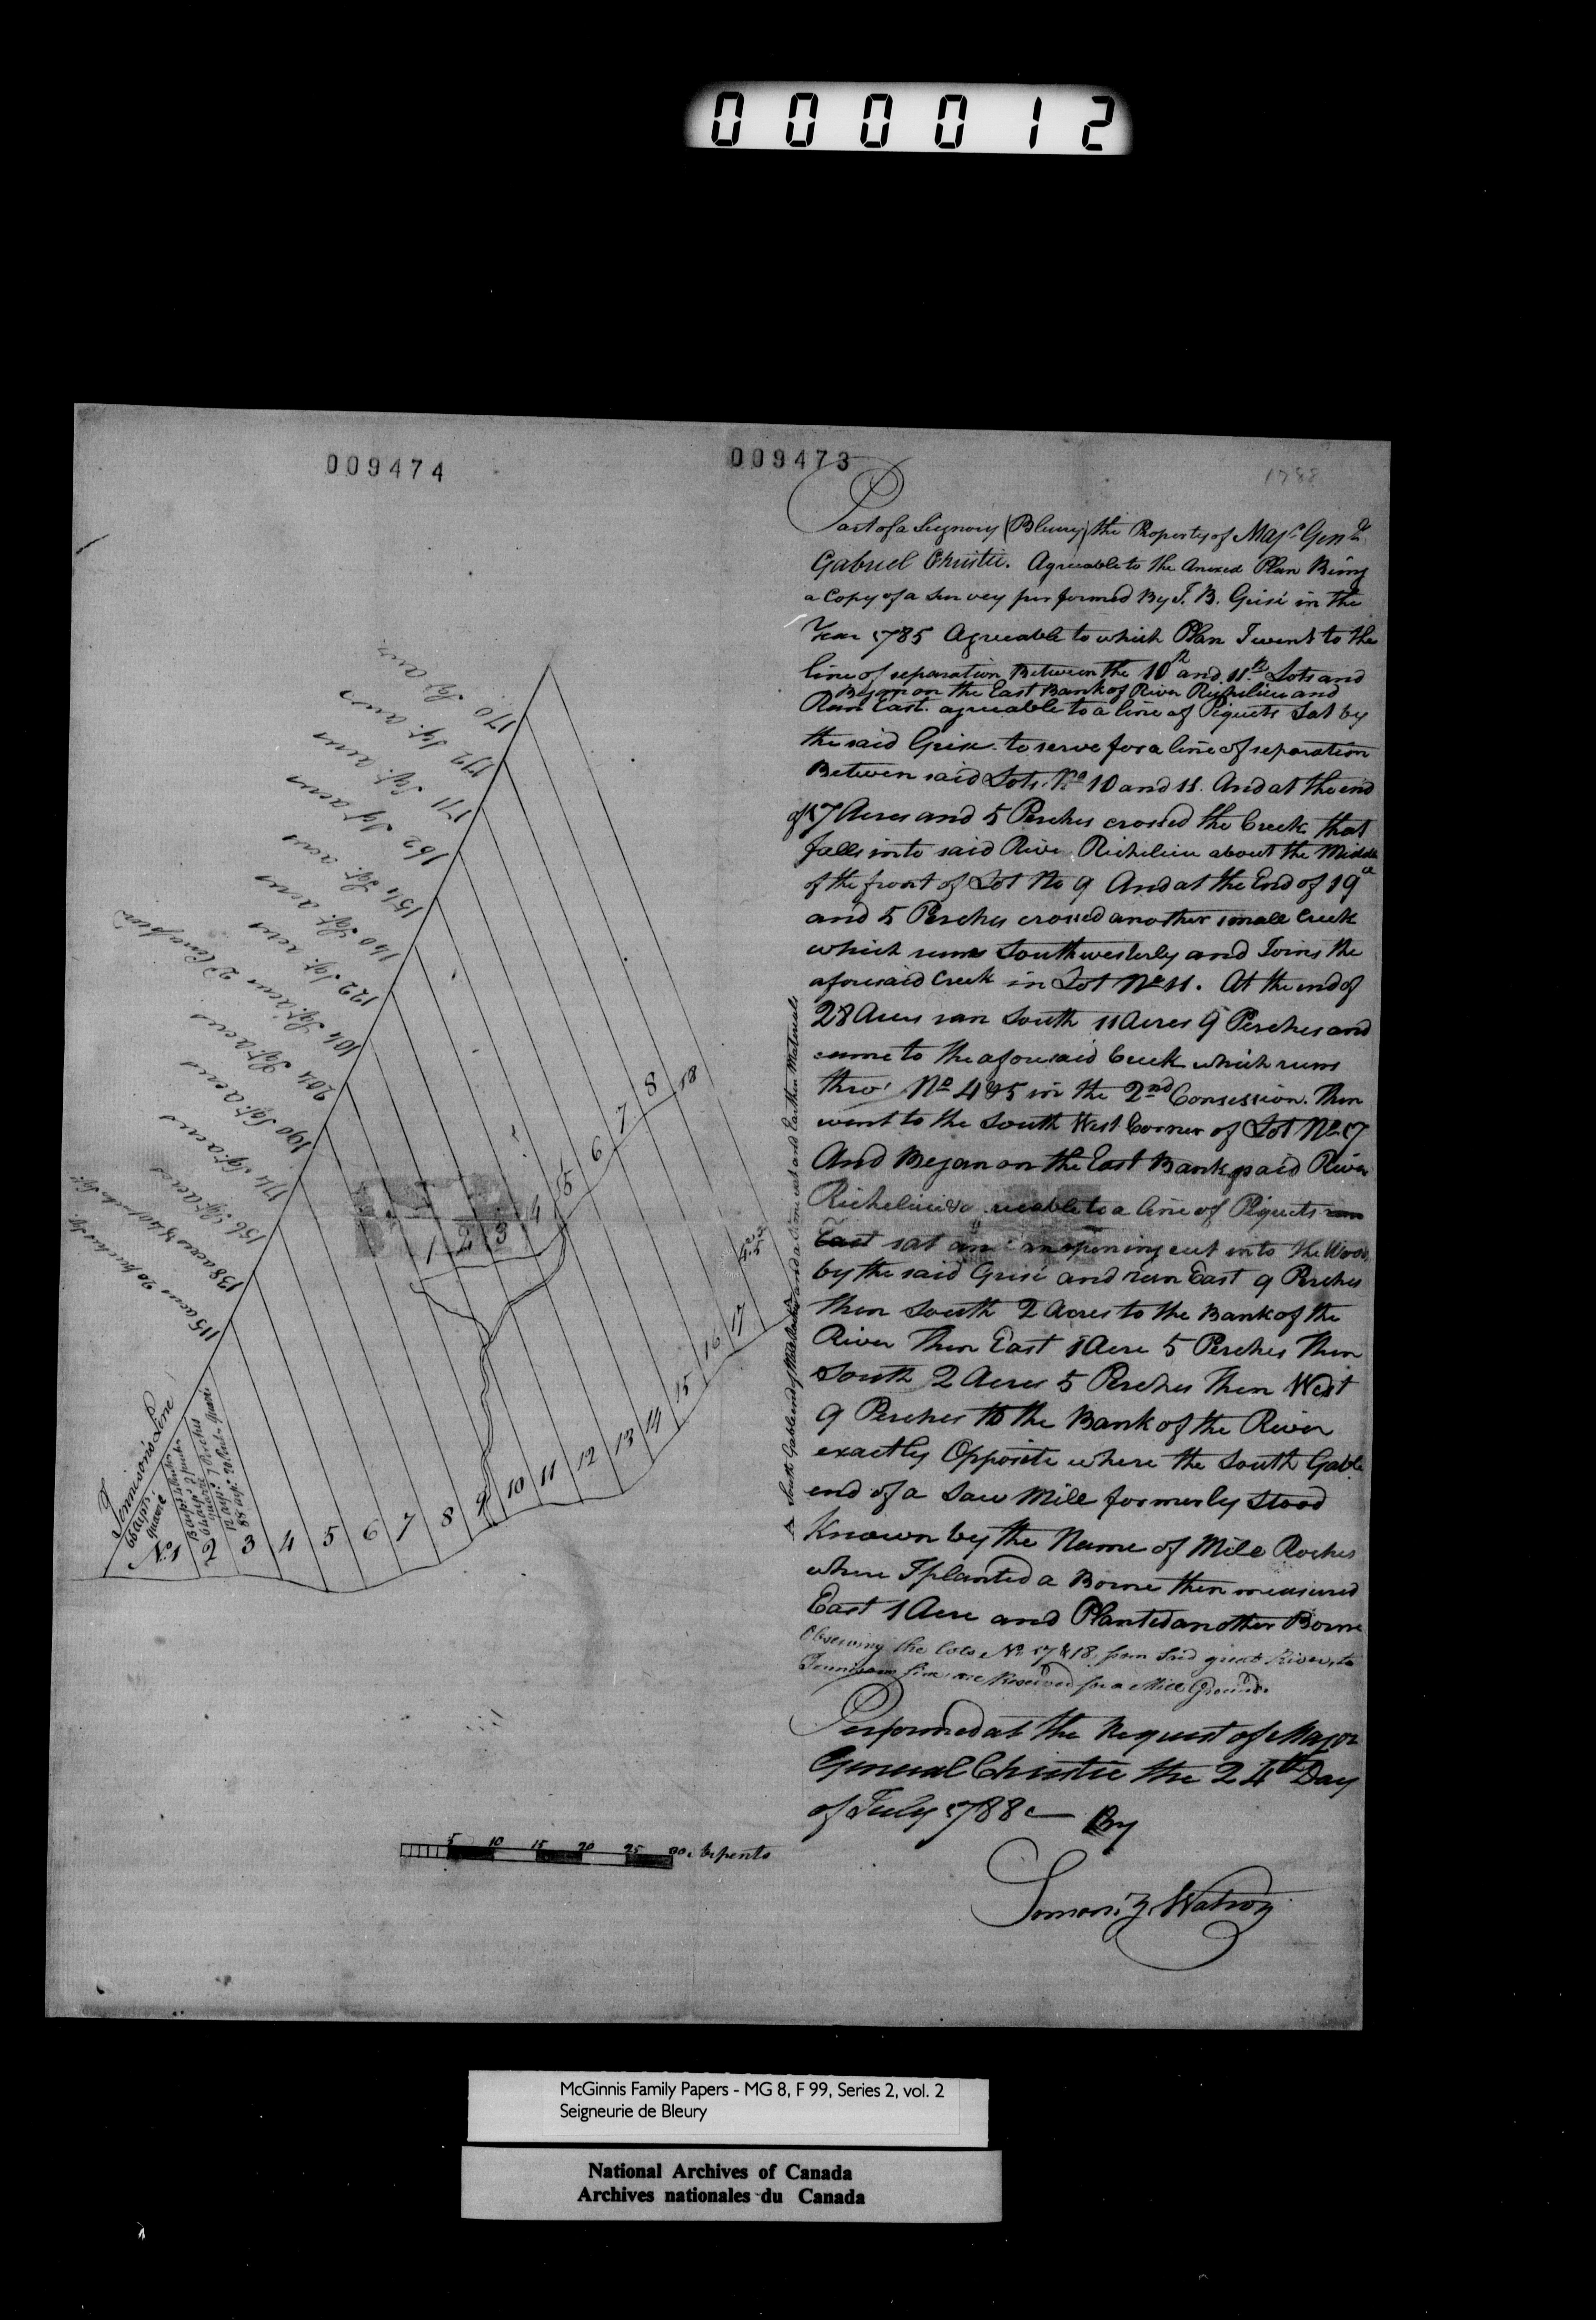 000012
009474
009473
1788
Part of a Seignory (Bleury) the Property of Majr Genll
Gabriel Christie. Agreeable to the Anexed Plan Being
a Copy of a Survey performed By J. B. Grisé in the
Year 1785 Agreeable to which Plan I went to the
line of separation Between the 10th and 11th Lots and
Began on the East Bank of River Richelieu and
Run East. agreeable to a line of Piquets Sat by
the said Grisé. to serve for a line of separation
Between said Lots. No 10 and 11. And at the end
of 17 Acres and 5 Perches crossed the Creek that
falls into said River Richelieu about the Middle
of the front of Lot No 9 And at the End of 19 a
and 5 Perches crossed another small Creek
which runs Southwesterly and Joins the
aforesaid Creek in Lot No 11. At the end of
28 Acres ran South 11 Acres 9 Perches and
came to the aforesaid Creek which runs
thro' No 4 & 5 in the 2nd Consession. Then
went to the South West Corner of Lot No 17
And Began on the East Bank said River
Richelieu & agreeable to a line of Piquets ran
East sat an opening cut into the Woods
by the said Grisé and run East 9 Perches
then South 2 Acres to the Bank of the
River Then East 1 Acre 5 Perches Then
South 2 Acres 5 Perches Then West
9 Perches to the Bank of the River
exactly Opposite where the South Gable
end of a Saw Mill formerly Stood
Known by the Name of Mile Roches
where I planted a Borne then measured
East 1 Acre and Planted another Borne
Observing the lots No 17 & 18 from Said great River, to
Tennisons line are Reserved for a Mill Ground.
Performed at the Request of Major
General Christie the 24th Day
of July 1788 By
Watson
South Gable end of and a Borne east and Earthen Materials
170 Sqr acres
172 Sqr. acres
171 Sqr. acres
162 Sqr acres
154 Sqr. acres
140 Sqr. acres
122 Sqr. acres
104 Sqr. acres 2d Concession
204 Sqr acres
190 Sqr. acres
174 Sqr. acres
156 Sqr acres
138 acres & 40 perches Sqr.
115 acres 20 perches Sqr.
Tennison's Line
66 arps. quarré
No. 1 2 3 4 5 6 7 8 9 10 11 12 13 14 15 16 17 18
1 2 3 4 5 6 7 8
5 10 15 20 25 30 Arpents
McGinnis Family Papers - MG 8, F 99, Series 2, vol. 2
Seigneurie de Bleury
National Archives of Canada
Archives nationales du Canada